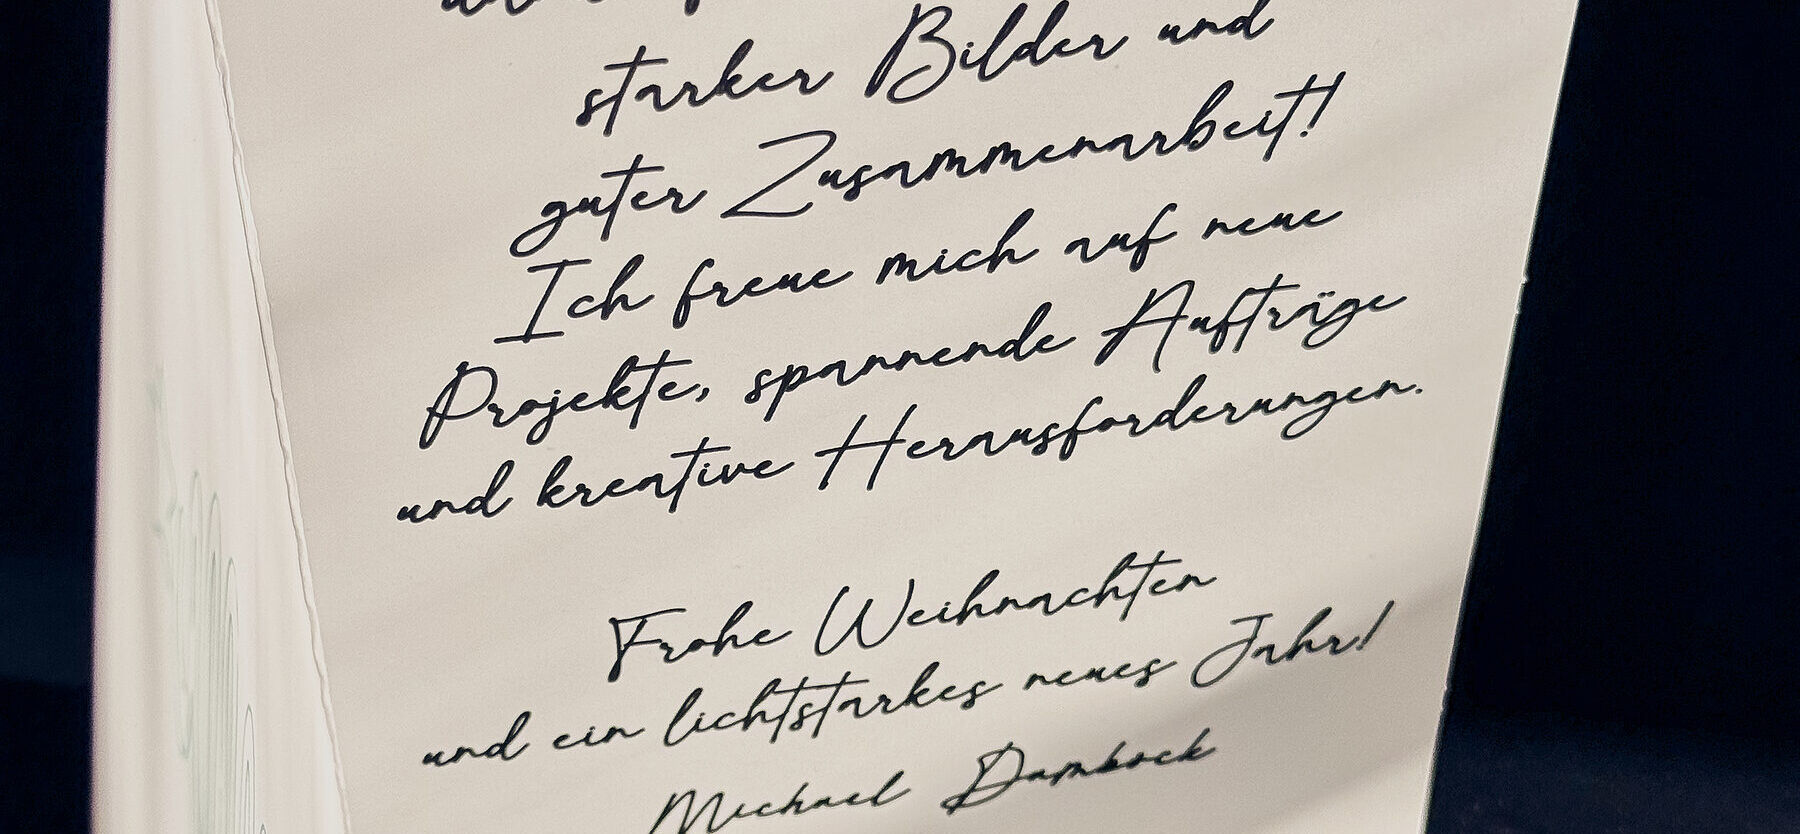 starker Bilder und
guter Zusammenarbeit!
Ich freue mich auf neue
Projekte, spannende Aufträge
und kreative Herausforderungen.
Frohe Weihnachten
und ein lichtstarkes neues Jahr!
Michael Dambock